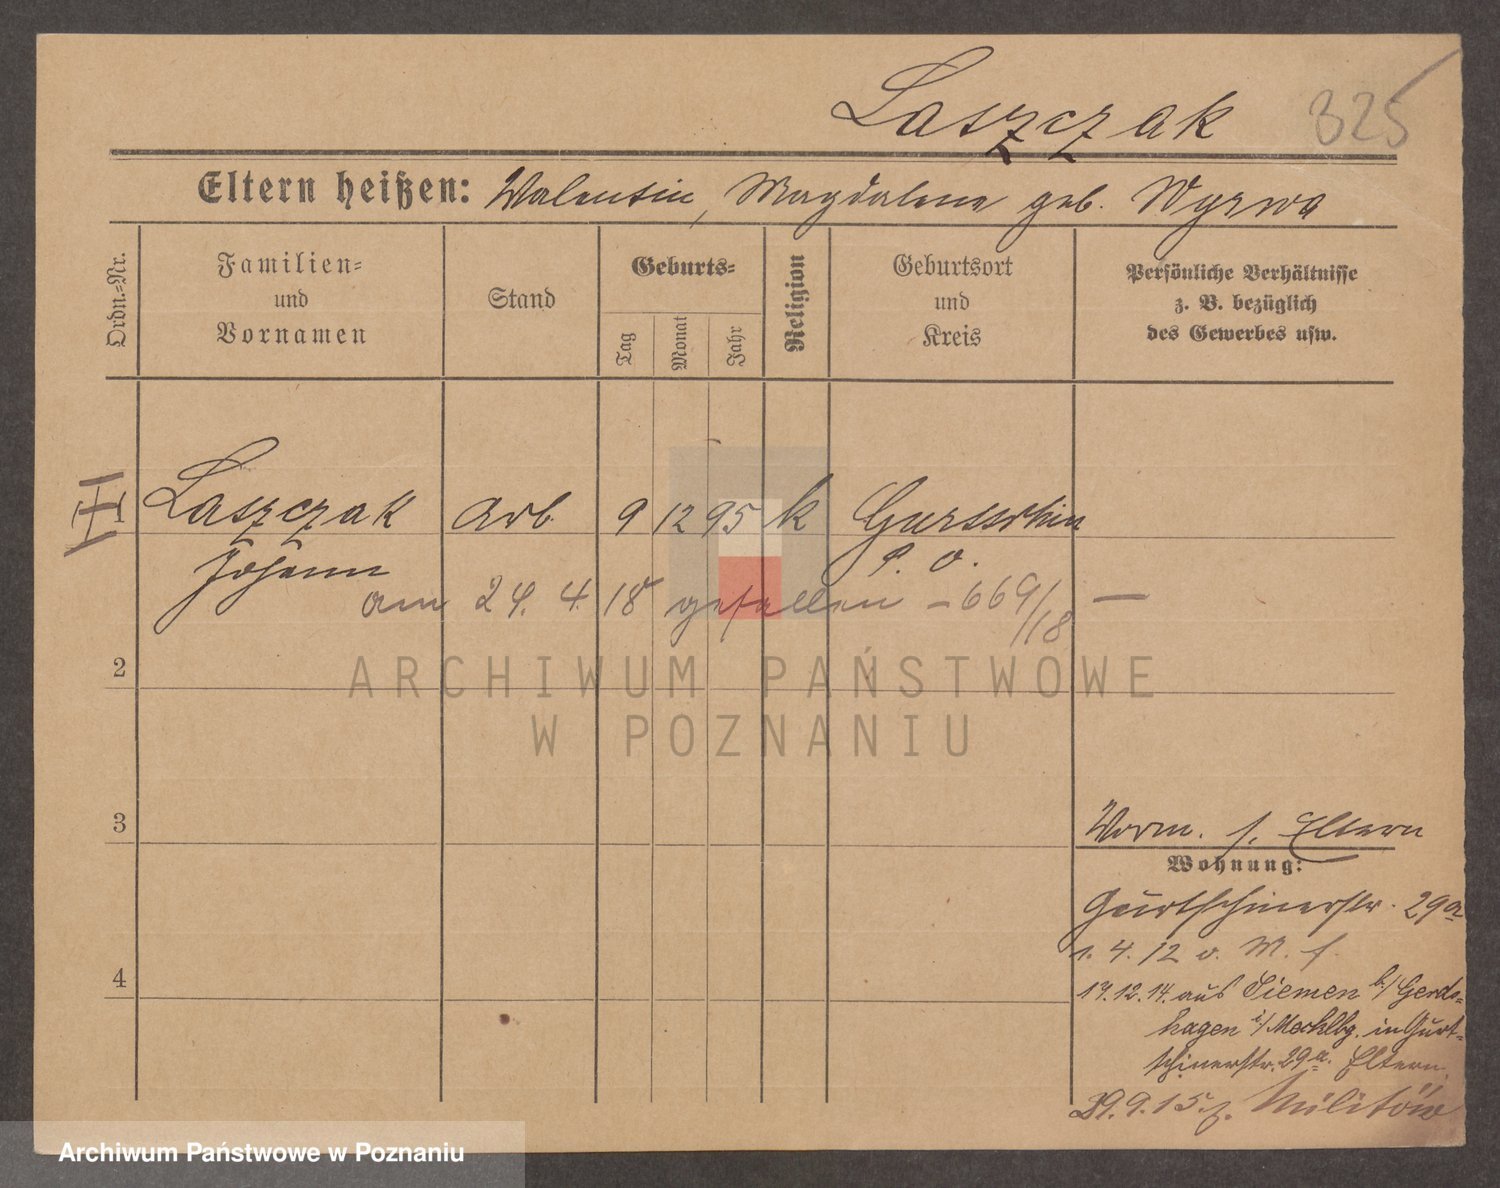 Laszczak 325
Eltern heißen: Valentin, Magdalene geb. Wyrwa
Ordn.-Nr.
Familien-
und
Vornamen
Stand
Geburts-
Tag
Monat
Jahr
Religion
Geburtsort
und
Kreis
Persönliche Verhältnisse
z. B. bezüglich
des Gewerbes usw.
1 Laszczak Arb. 9 12 95 k Gurtschin
Johann P. O.
am 24. 4. 18 gefallen – 669/18 –
2
3
Vorm. s. Eltern
Wohnung:
Gurtschinerstr. 29a
1. 4. 12 v. M. f.
4
17.12.14. aus Siemen b/ Gerds-
hagen i/ Mecklbg. in Gurt-
schinerstr. 29a. Eltern.
29.9.15. z. Militär
ARCHIWUM PAŃSTWOWE
W POZNANIU
Archiwum Państwowe w Poznaniu